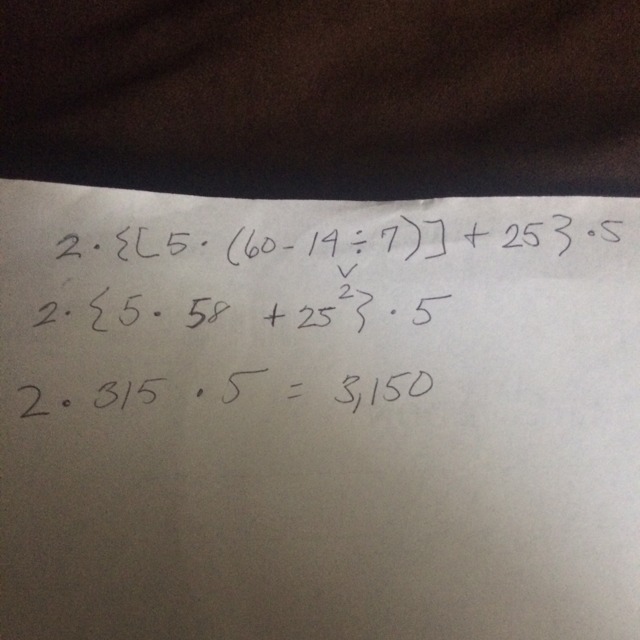 2 · {[5 · (60 - 14 ÷ 7)] + 25} · 5
2
2 · {5 · 58 + 25} · 5
2 · 315 · 5 = 3,150